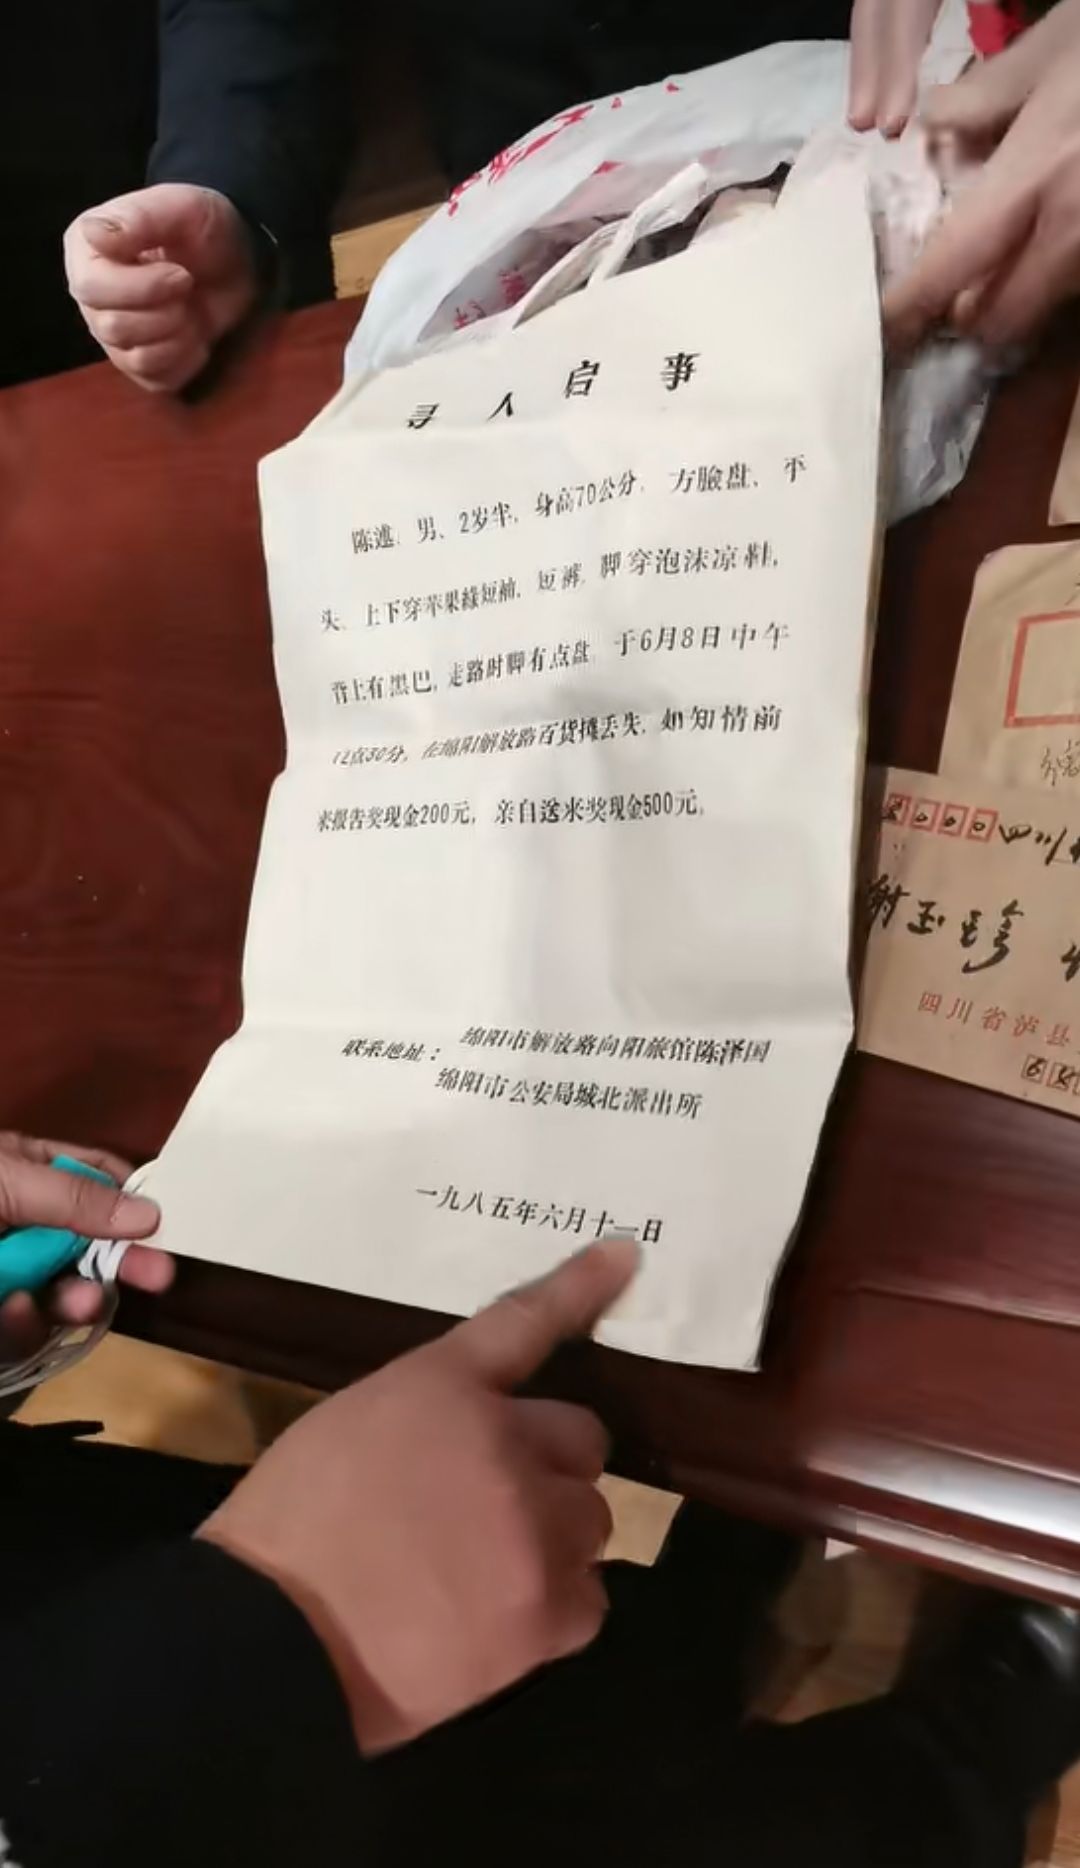 寻人启事
陈逑，男、2岁半，身高70公分，方臉盘、平
头、上下穿苹果緑短袖，短裤，脚穿泡沫凉鞋，
背上有黑巴，走路时脚有点盘，于6月8日中午
12点30分，在绵阳解放路百货摊丢失，如知情前
来报告奖现金200元，亲自送来奖现金500元。
联系地址：绵阳市解放路向阳旅馆陈泽国
绵阳市公安局城北派出所
一九八五年六月十一日
四川
谢玉珍
四川省泸县